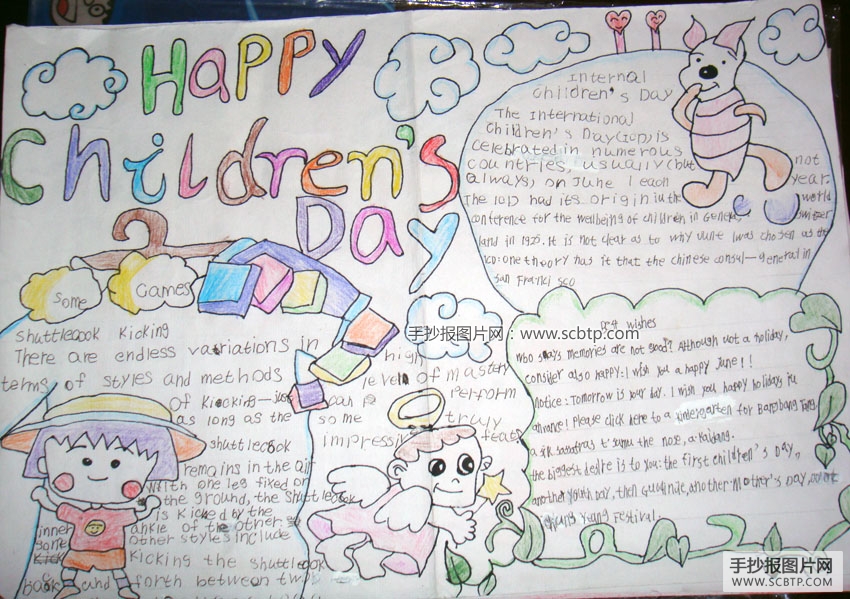 Happy
Children's
Day
Internal
Children's Day
The International
Children's Day(ICD) is
celebrated in numerous
countries, usually (but not
always) on June 1 each year.
The ICD had its origin in the world
conference for the wellbeing of children in Geneva, Switzer
land in 1925. It is not clear as to why June 1 was chosen as the
ICD: one theory has it that the chinese consul-general in
san Franci sco
some Games
shuttlecook kicking
There are endless variations in high
terms of styles and methods level of mastery
of kicking - just can perform
as long as the some truly
shuttlecook impressive feats
remains in the air
with one leg fixed on
the ground, the shuttlecook
is kicked by the
inner ankle of the other
some other styles include
kicking the shuttlecook
back and forth between two
手抄报图片网:www.scbtp.com
wishes
who says memories are not good? Although not a holiday,
consider also happy: I wish you a happy June 1!
Notice: Tomorrow is your day. I wish you happy holidays in
Please click here to a kindergarten for
the nose,
the biggest desire is to you: the first children's Day,
another youth day, then another mother's Day,
Festival.
手抄报图片网
WWW.SCBTP.COM